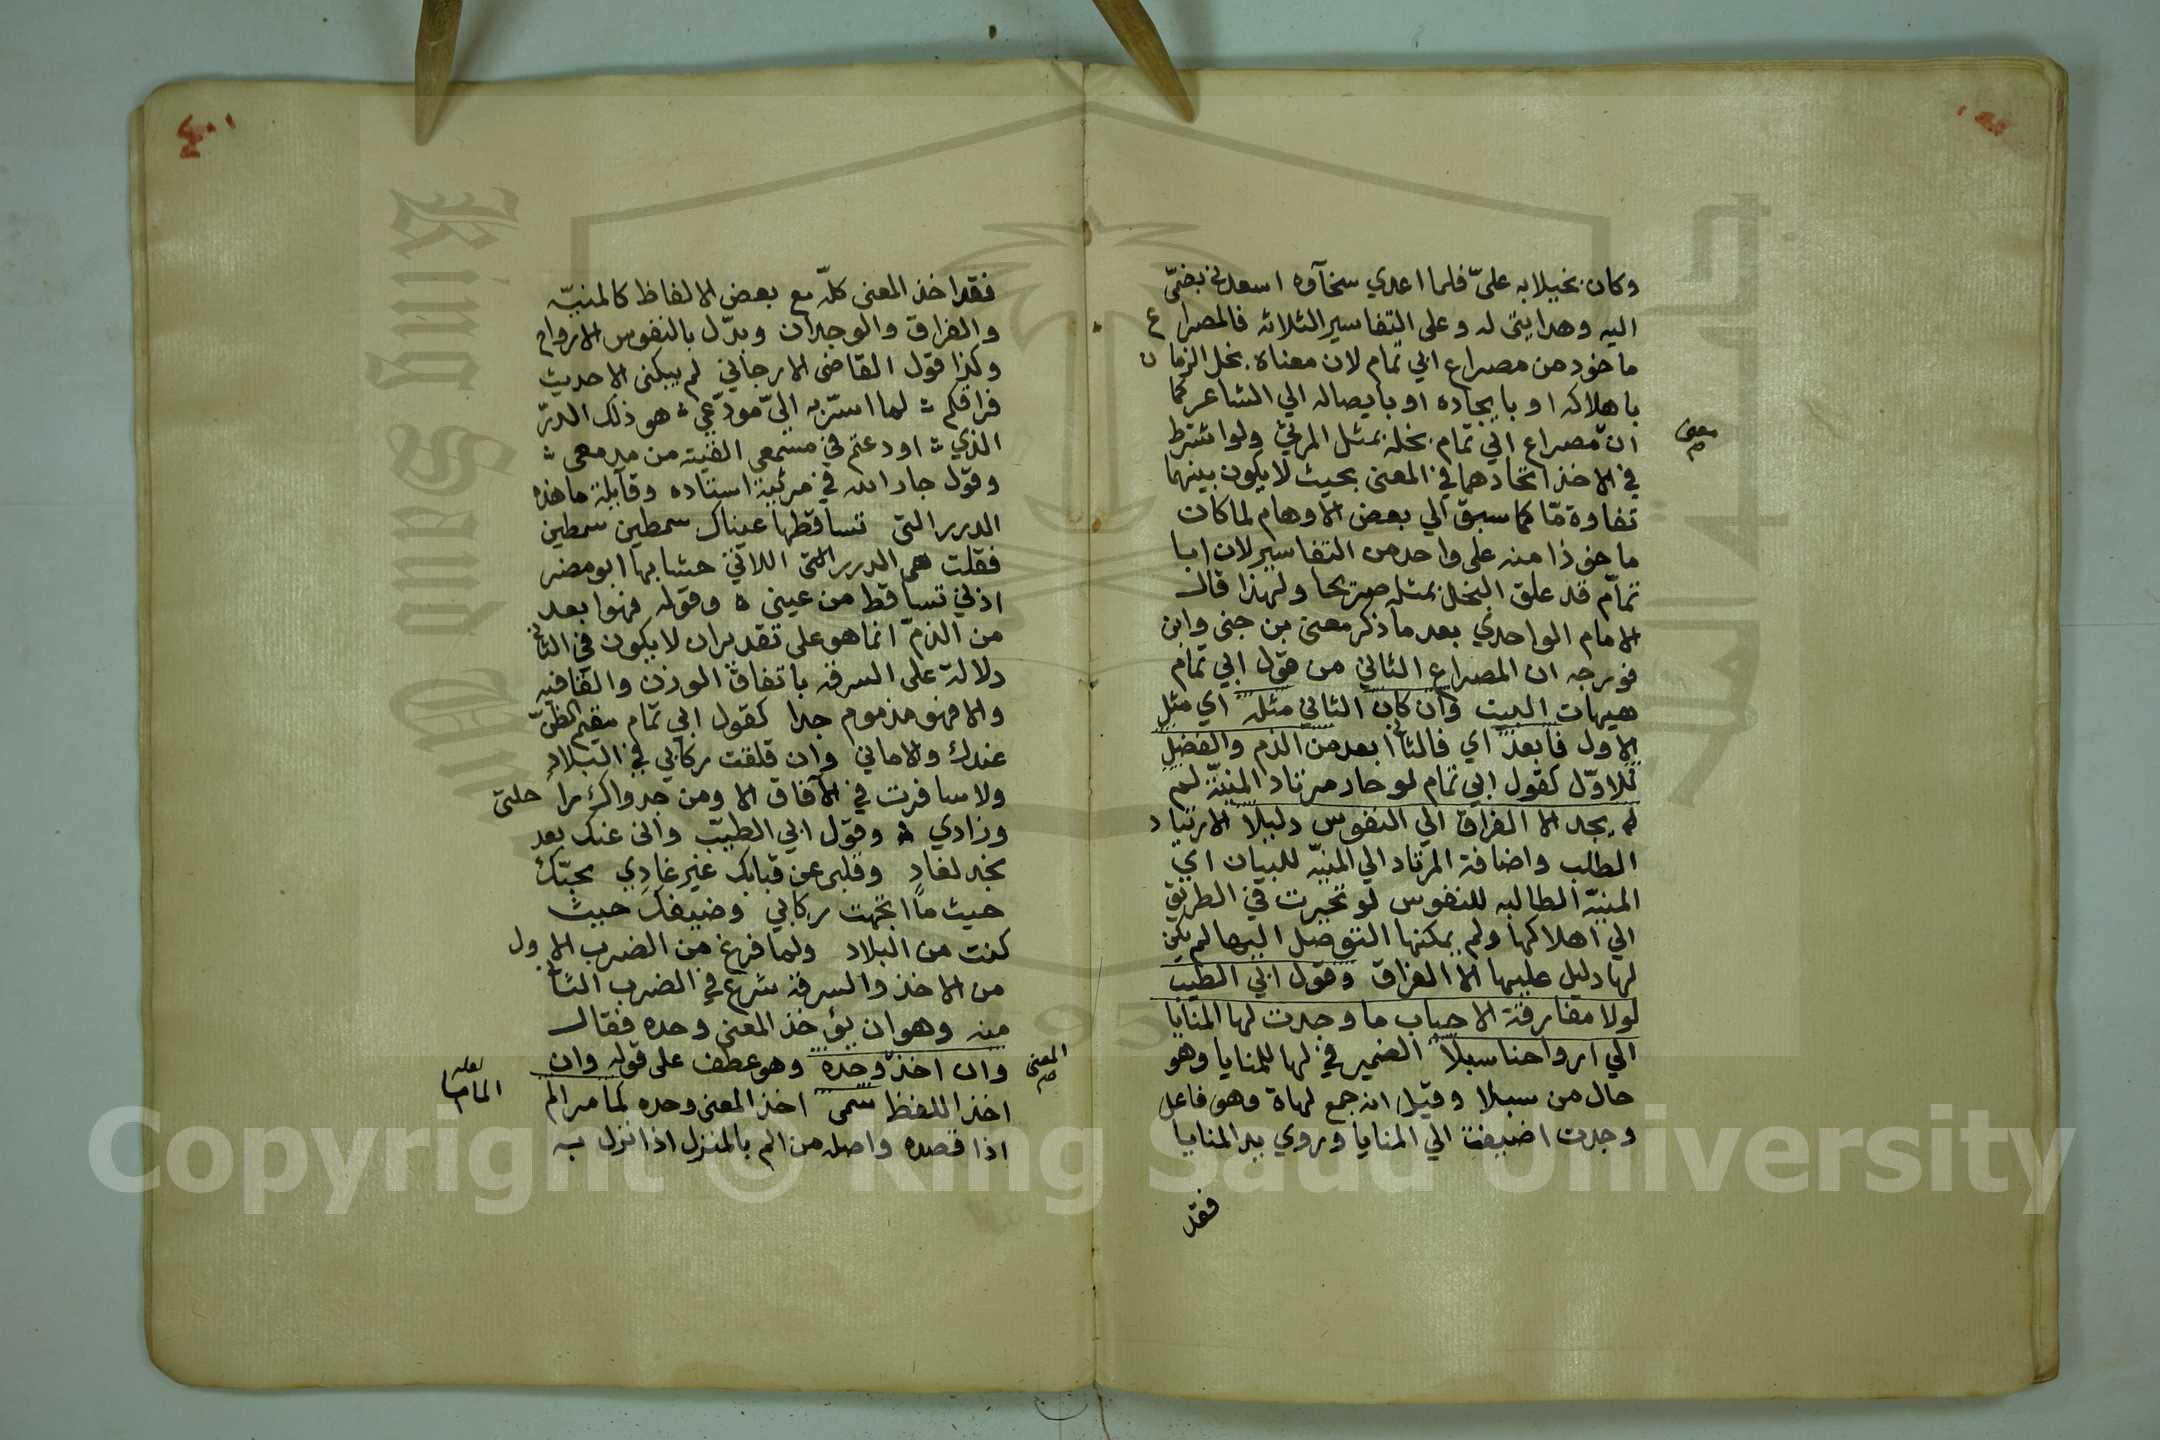 وكان بخيلا به عليّ فلما اعدي سخآوه اسعدني بضمّي
اليه وهدايتي له وعلى التفاسير الثلاثه فالمصراع
ماخود من مصراع ابي تمام لان معناه بخل الزمان
باهلاكه او بايجاده او بايصاله الي الشاعر كما
ان مصراع ابي تمام بخله بمثل المرثي ولو اشترط
معنى
في الاخذ اتحادهما في المعنى بحيث لا يكون بينهما
تفاوة مّا كما سبق الي بعض الاوهام لما كان
ماخوذا منه على واحد من التفاسير لان ابا
تمام قد علق البخل بمثله صريحا ولهذا قال
الامام الواحدي بعد ما ذكر معنى بن جني وابن
فورجه ان المصراع الثاني من قول ابي تمام
هيهات البيت وان كان الثاني مثله اي مثل
الاول فابعد اي فالثاني ابعد من الذم والفضل
للاوّل كقول ابي تمام لو حار مرتاد المنيّة لم
يجد الا الفراق الي النفوس دليلا الارتياد
الطلب واضافة المرتاد الي المنيّه للبيان اي
المنيّة الطالبه للنفوس لو تحيرت في الطريق
الي اهلاكها ولم يمكنها التوصل اليها لم يكن
لها دليل عليها الا الفراق وقول ابي الطيب
لولا مفارقة الاحباب ما وجدت لها المنايا
الي ارواحنا سبلا الضمير في لها للمنايا وهو
حال من سبلا وقيل انه جمع لهاة وهو فاعل
وجدت اضيفت الي المنايا وروي يد المنايا
فقد
فقد اخذ المعنى كلّه مع بعض الالفاظ كالمنيّه
والفراق والوجدان وبدّل بالنفوس الارواح
وكذا قول القاضي الارجاني لم يبكني الا حديث
فراقكم لما اسرّ به اليّ مودّعي هو ذلك الدرّ
الذي اودعتم في مسمعي القيته من مدمعي
وقول جار الله في مرثية استاده وقآيلة ما هذه
الدرر التي تساقطها عيناك سمطين سمطين
فقلت هي الدرر التي اللاتي حشا بها ابو مضر
اذني تساقط من عيني وقوله فهوا بعد
من الذمّ انما هو على تقدير ان لا يكون في الثاني
دلالة على السرقه باتفاق الوزن والقافيه
والا فهو مذموم جدا كقول ابي تمام مقيم الظنّ
عندك والاماني وان قلقت ركابي في البلاد
ولا سافرت في الآفاق الا ومن جدواك راحلتي
وزادي وقول ابي الطيّب واني عنك بعد
غد لغاد وقلبي عن قبابك غير غادي محبّك
حيث ما اتجهت ركابي وضيفك حيث
كنت من البلاد ولما فرغ من الضرب الاول
من الاخذ والسرقة شرع في الضرب الثاني
منه وهو ان يؤخذ المعنى وحده فقال
وان اخذ وحده وهو عطف على قوله وان
المعنى
صح
اخذ اللفظ سمى اخذ المعنى وحده لماما من الم
لعله
الماما
اذا قصده واصله من الم بالمنزل اذا نزل به
King Saud University
1957
Copyright © King Saud University